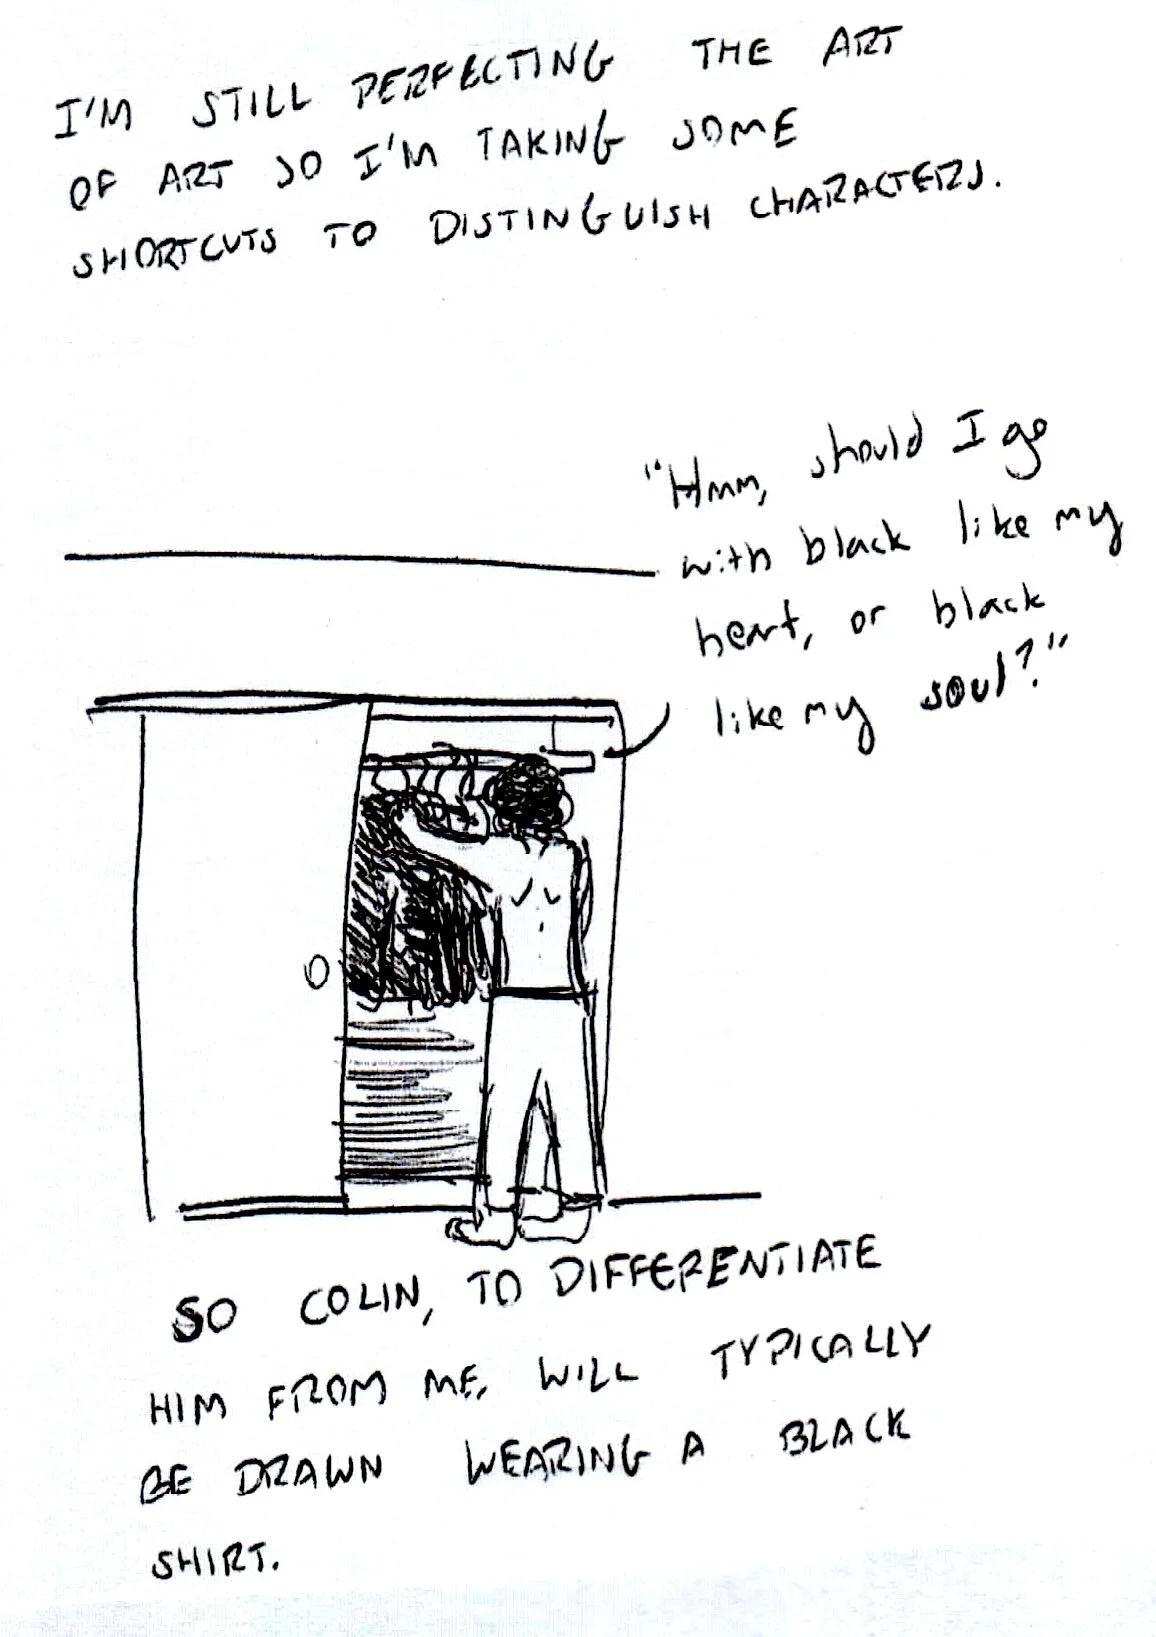 I'M STILL PERFECTING THE ART
OF ART SO I'M TAKING SOME
SHORTCUTS TO DISTINGUISH CHARACTERS.
"Hmm, should I go
with black like my
heart, or black
like my soul?"
SO COLIN, TO DIFFERENTIATE
HIM FROM ME, WILL TYPICALLY
BE DRAWN WEARING A BLACK
SHIRT.